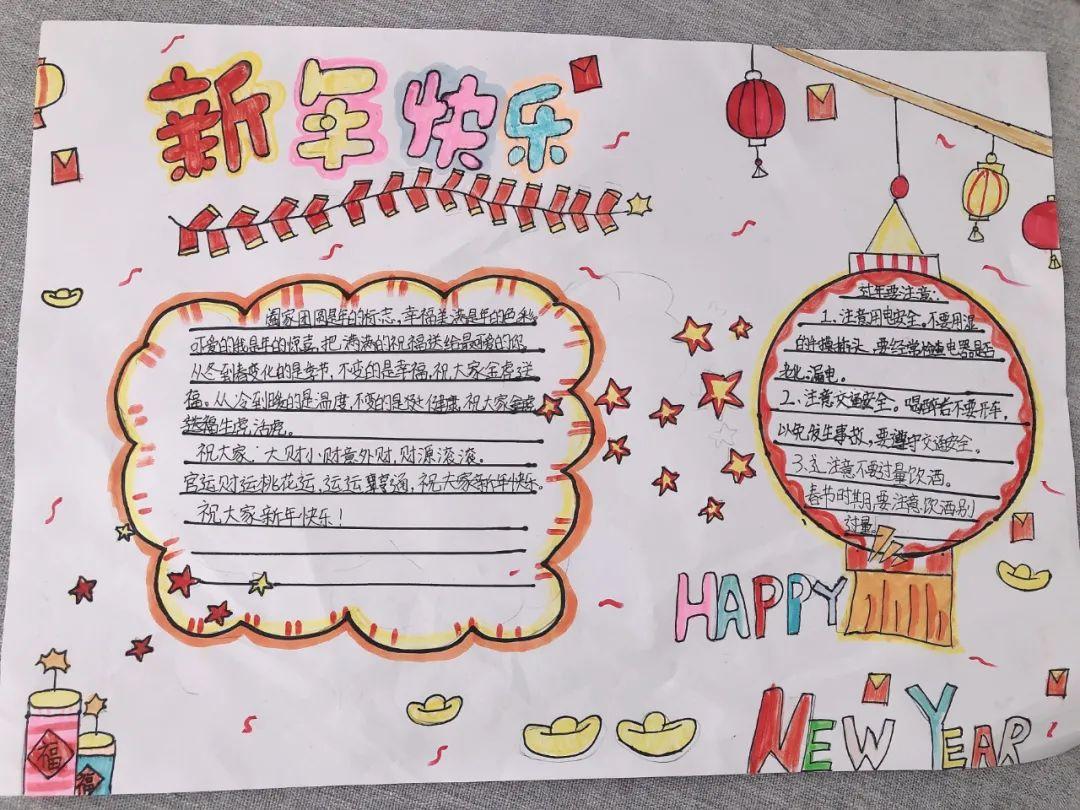 新年快乐
阖家团圆是年的标志,幸福美满是年的色彩
可爱的我是年的惊喜,把满满的祝福送给最可爱的你
从冬到春变化的是季节,不变的是幸福,祝大家金虎送
福。从冷到暖的是温度,不变的是健康,祝大家金虎
送福生虎活虎。
祝大家:大财小财意外财,财源滚滚。
官运财运桃花运,运运亨通,祝大家新年快乐。
祝大家新年快乐!
过年要注意:
1、注意用电安全。不要用湿
的手摸插头,要经常检查电器是否
老化、漏电。
2、注意交通安全。喝醉后不要开车,
以免发生事故,要遵守交通安全。
3、注意不要过量饮酒。
春节时期,要注意饮酒别
过量!
HAPPY
NEW YEAR
福
福